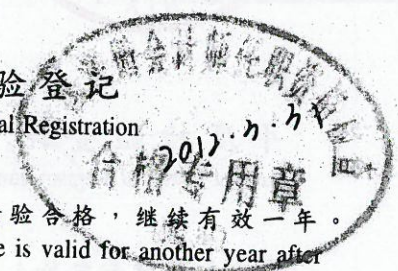 会计师任职资格检查
验登记
al Registration
2012.3.31
合格专用章
验合格，继续有效一年。
e is valid for another year after